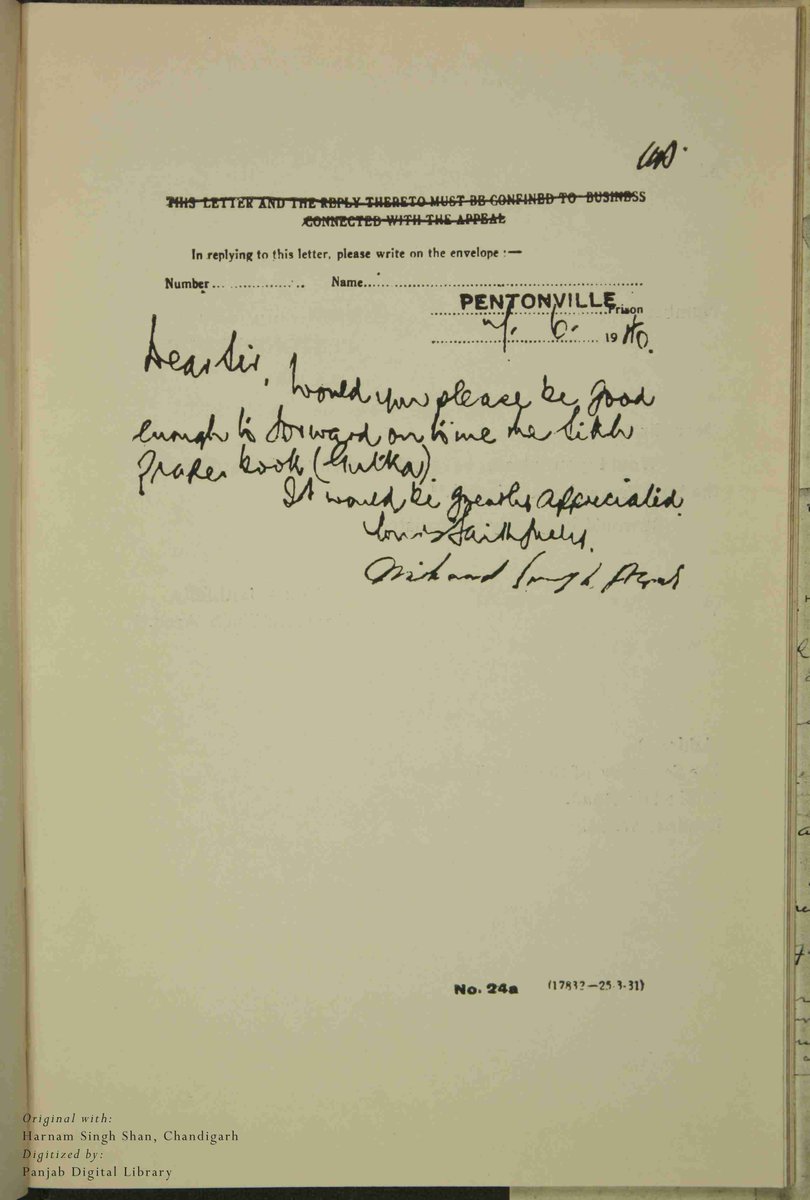 THIS LETTER AND THE REPLY THERETO MUST BE CONFINED TO BUSINESS
CONNECTED WITH THE APPEAL
In replying to this letter, please write on the envelope :—
Number... Name...
PENTONVILLE Prison
6. 1940.
Dear Sir,
Would you please be good
enough to forward on to me the Sikh
Prayer book (Gutka).
It would be greatly appreciated.
Yours faithfully,
Singh Azad
No. 24a (17832—25-3-31)
Original with:
Harnam Singh Shan, Chandigarh
Digitized by:
Panjab Digital Library